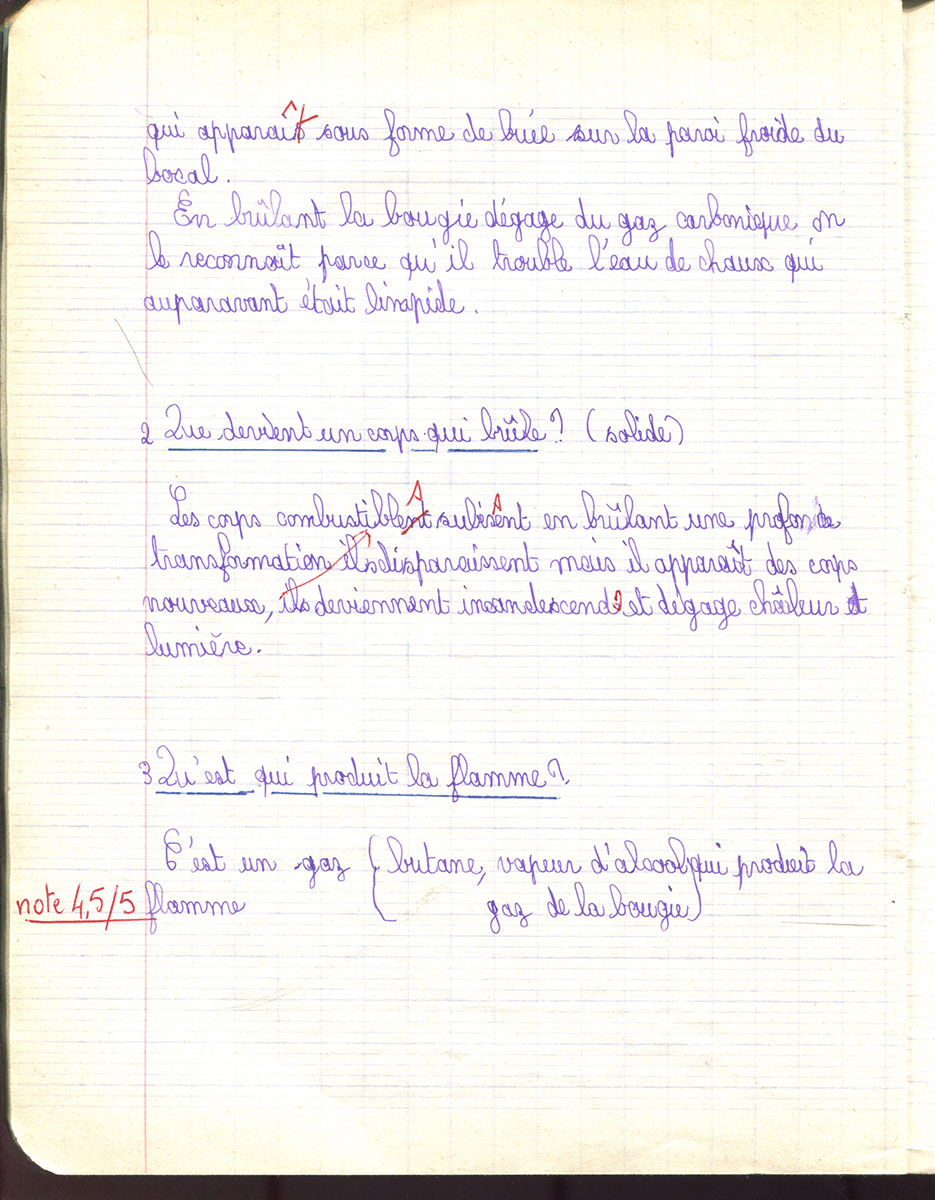 qui apparait sous forme de buée sur la paroi froide du
bocal.
En brûlant la bougie dégage du gaz carbonique on
le reconnaît parce qu'il trouble l'eau de chaux qui
auparavant était limpide.
2 Que devient un corps qui brûle ? (solide)
Les corps combustiblent subisent en brûlant une profonde
transformation ils disparaissent mais il apparaît des corps
nouveaux, ils deviennent incandescends et dégage châleur et
lumière.
3 Qu'est qui produit la flamme ?
C'est un gaz (butane, vapeur d'alcool qui produit la
note 4,5/5 flamme gaz de la bougie)